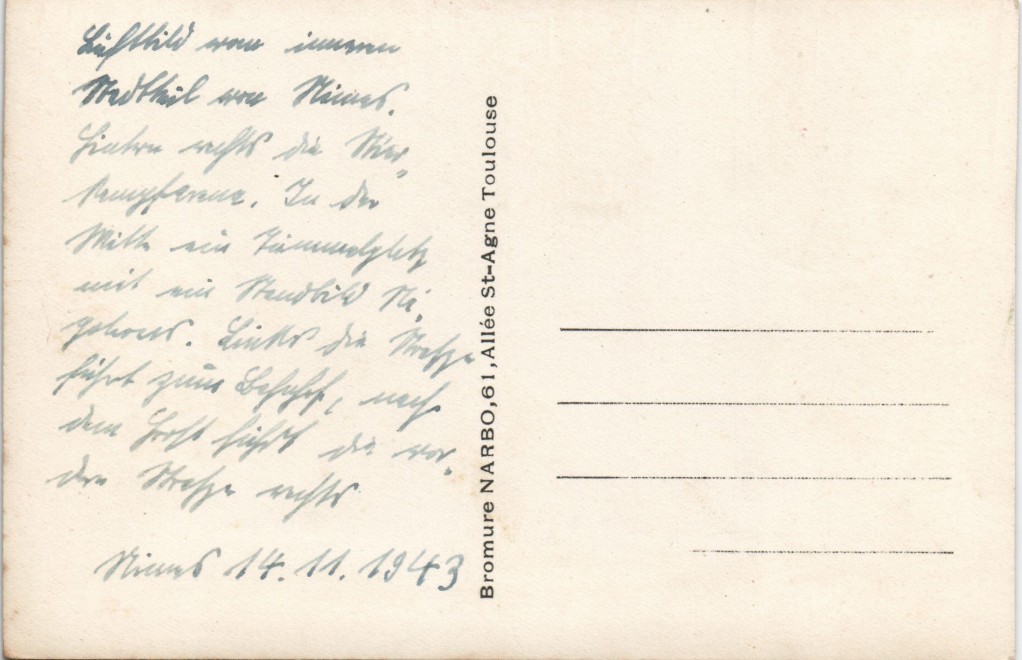 Lichtbild vom inneren
Stadtteil von Nimes.
Hinten rechts die Stier-
kampfarena. In der
Mitte ein Tummelplatz
mit ein Standbild
Links die Straße
führt zum Bahnhof, nach
dem Horst führt die vor-
dre Straße rechts
Nimes 14.11.1943
Bromure NARBO,61,Allée St-Agne Toulouse